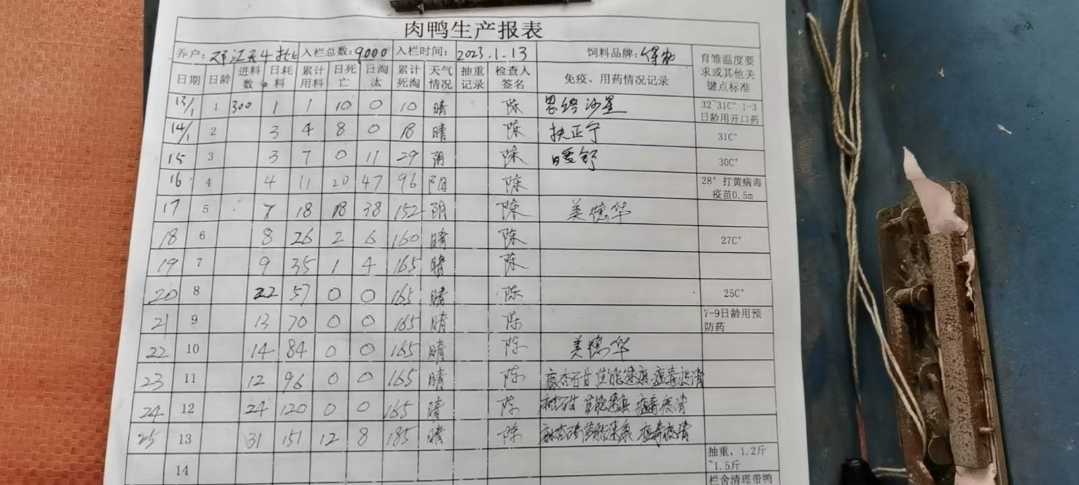 肉鸭生产报表
养户: 入栏总数:9000 入栏时间: 2023.1.13 饲料品牌:
日期 日龄 进料数 日耗料 累计用料 日死亡 日淘汰 累计死淘 天气情况 抽重记录 检查人签名 免疫、用药情况记录 育雏温度要求或其他关键点标准
13/1 1 300 1 1 10 0 10 晴 陈 恩诺沙星 32~31C° 1-3日龄用开口药
14/1 2 3 4 8 0 18 晴 陈 扶正宁 31C°
15 3 3 7 0 11 29 阴 陈 暖舒 30C°
16 4 4 11 20 47 96 阳 陈 28° 打黄病毒疫苗0.5m
17 5 7 18 18 38 152 阴 陈 美德华
18 6 8 26 2 6 160 晴 陈 27C°
19 7 9 35 1 4 165 晴 陈
20 8 22 57 0 0 165 晴 陈 25C°
21 9 13 70 0 0 165 晴 陈 7-9日龄用预防药
22 10 14 84 0 0 165 晴 陈 美德华
23 11 12 96 0 0 165 晴 陈
24 12 24 120 0 0 165 晴 陈
25 13 31 151 12 8 185 晴 陈
14 抽重，1.2斤~1.5斤
栏舍清理带鸭